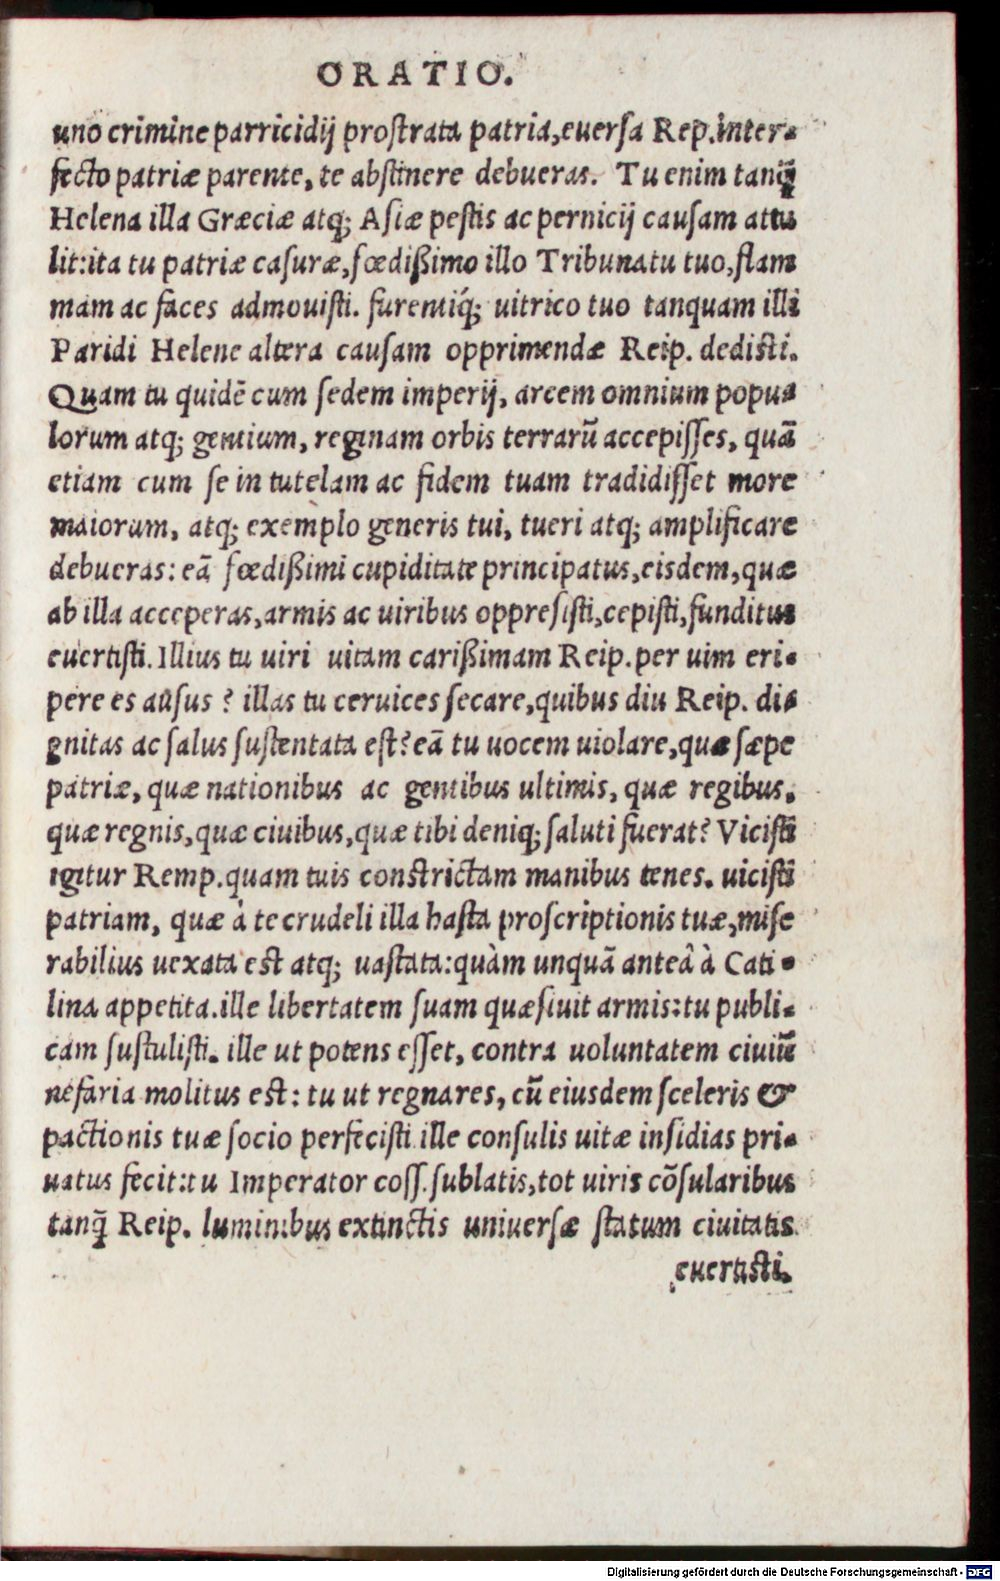 ORATIO.
uno crimine parricidij prostrata patria, euersa Rep. inter-
fecto patriæ parente, te abstinere debueras. Tu enim tanq̃
Helena illa Græciæ atq; Asiæ pestis ac pernicij causam attu
lit: ita tu patriæ casuræ, fœdißimo illo Tribunatu tuo, flam
mam ac faces admouisti. furentiq́; uitrico tuo tanquam illi
Paridi Helene altera causam opprimendæ Reip. dedisti.
Quam tu quidẽ cum sedem imperij, arcem omnium popu-
lorum atq; gentium, reginam orbis terrarũ accepisses, quã
etiam cum se in tutelam ac fidem tuam tradidisset more
maiorum, atq; exemplo generis tui, tueri atq; amplificare
debueras: eã fœdißimi cupiditate principatus, eisdem, quæ
ab illa acceperas, armis ac uiribus oppresisti, cepisti, funditus
euertisti. Illius tu uiri uitam carißimam Reip. per uim eri-
pere es ausus? illas tu ceruices secare, quibus diu Reip. di-
gnitas ac salus sustentata est? eã tu uocem uiolare, quæ sæpe
patriæ, quæ nationibus ac gentibus ultimis, quæ regibus,
quæ regnis, quæ ciuibus, quæ tibi deniq; saluti fuerat? Vicisti
igitur Remp. quam tuis constrictam manibus tenes. uicisti
patriam, quæ à te crudeli illa hasta proscriptionis tuæ, mise
rabilius uexata est atq; uastata: quàm unquã anteà à Cati-
lina appetita. ille libertatem suam quæsiuit armis: tu publi-
cam sustulisti. ille ut potens esset, contra uoluntatem ciuiũ
nefaria molitus est: tu ut regnares, cũ eiusdem sceleris &
pactionis tuæ socio perfecisti. ille consulis uitæ insidias pri-
uatus fecit: tu Imperator coss. sublatis, tot uiris cõsularibus
tanq̃ Reip. luminibus extinctis uniuersæ statum ciuitatis
euertisti.
Digitalisierung gefördert durch die Deutsche Forschungsgemeinschaft - DFG